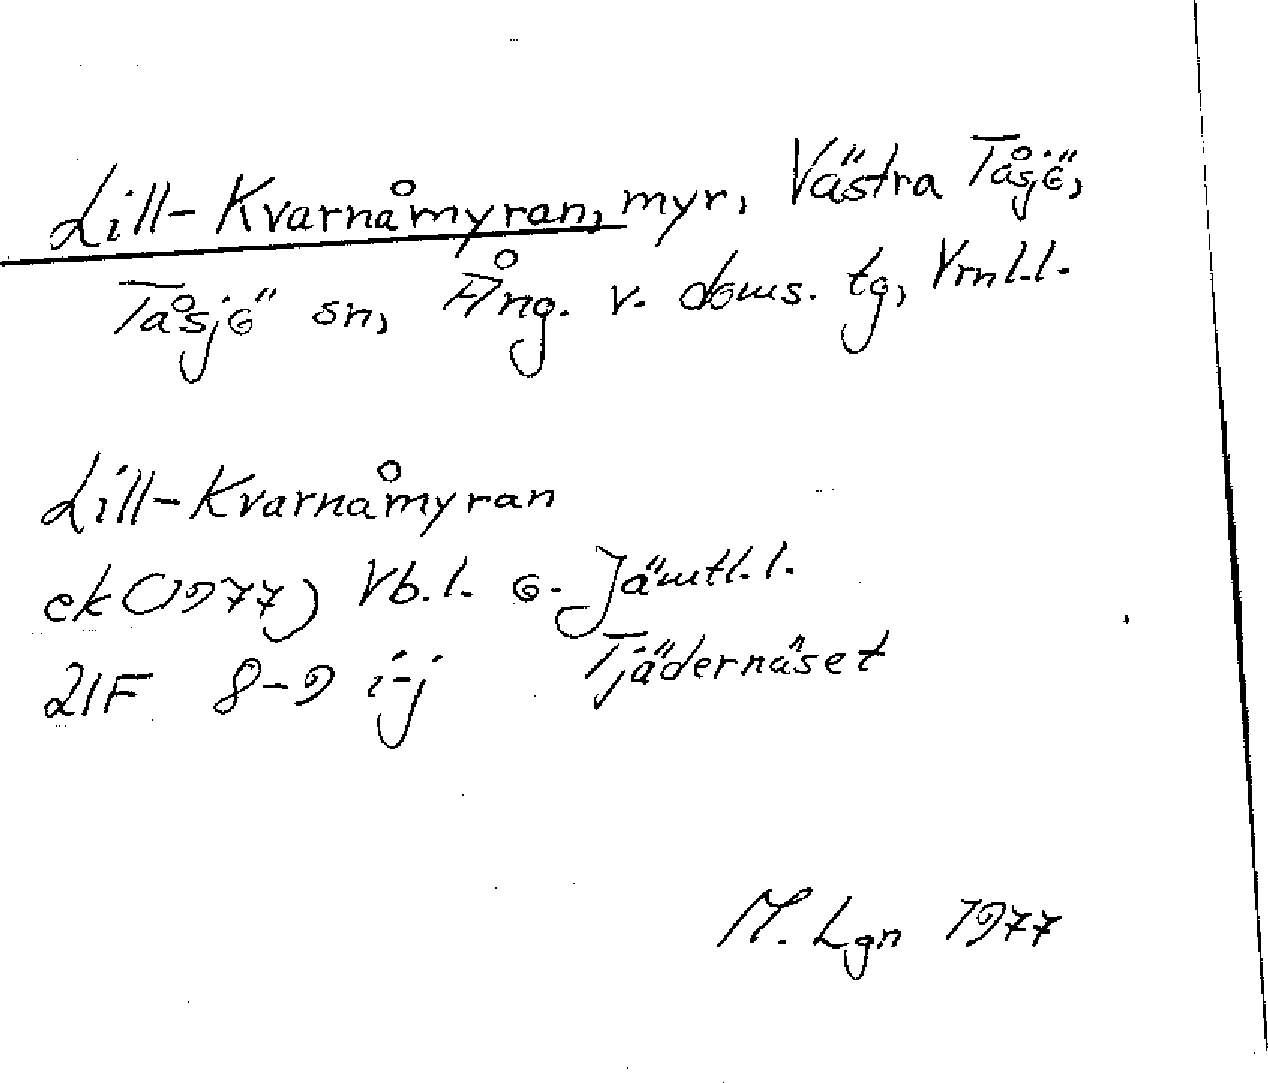 Lill-Kvarnåmyran, myr, Västra Tåsjö,
Tåsjö sn, Ång. v. doms. tg, Vrnl.l.
Lill-Kvarnåmyran
ek (1977) Vb.l. o. Jämtl.l.
21F 8-9 i-j Tjädernäset
M. Lgn 1977